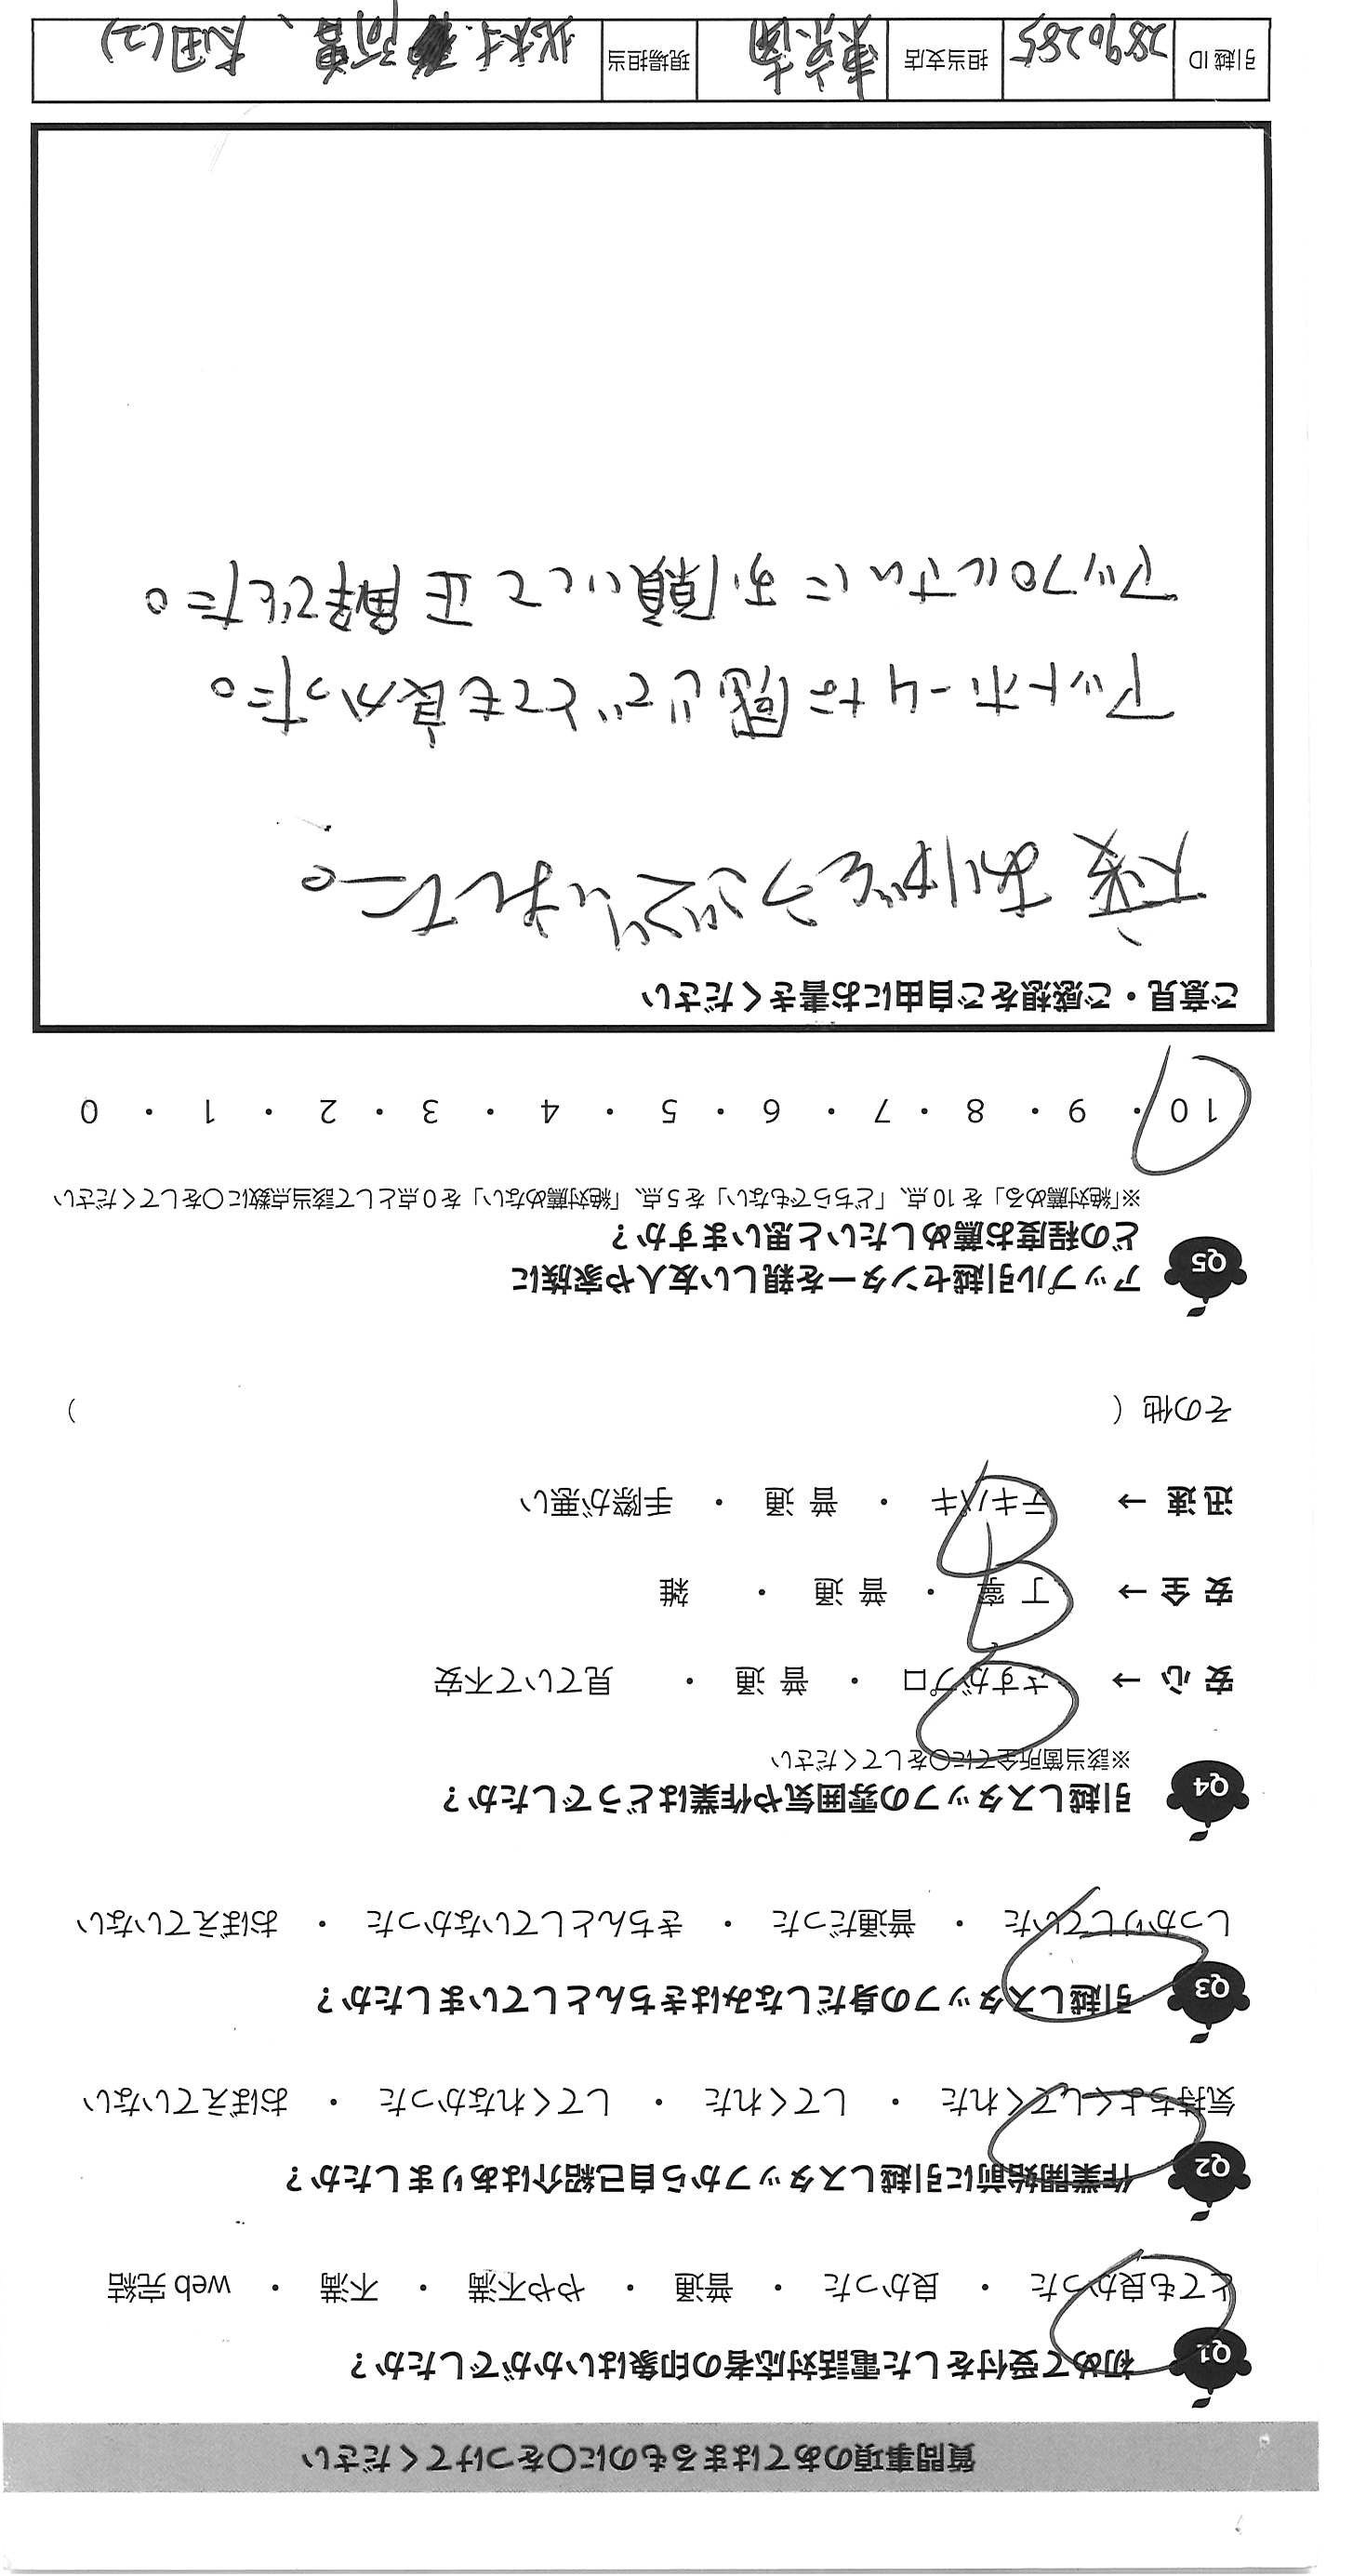 質問事項のあてはまるものに〇をつけてください
Q1 初めて受付をした電話対応者の印象はいかがでしたか？
とても良かった ・ 良かった ・ 普通 ・ やや不満 ・ 不満 ・ web 完結
Q2 作業開始前に引越しスタッフから自己紹介はありましたか？
気持ちよくしてくれた ・ してくれた ・ してくれなかった ・ おぼえていない
Q3 引越しスタッフの身だしなみはきちんとしていましたか？
しっかりしていた ・ 普通だった ・ きちんとしていなかった ・ おぼえていない
Q4 引越しスタッフの雰囲気や作業はどうでしたか？
※該当箇所全てに〇をしてください
安 心 → さすがプロ ・ 普 通 ・ 見ていて不安
安 全 → 丁 寧 ・ 普 通 ・ 雑
迅 速 → テキパキ ・ 普 通 ・ 手際が悪い
その他（ ）
Q5 アップル引越センターを親しい友人や家族に
どの程度お薦めしたいと思いますか？
※「絶対薦める」を 10 点、「どちらでもない」を 5 点、「絶対薦めない」を 0 点として該当点数に〇をしてください
10 ・ 9 ・ 8 ・ 7 ・ 6 ・ 5 ・ 4 ・ 3 ・ 2 ・ 1 ・ 0
ご意見・ご感想をご自由にお書きください
大変ありがとうございました。
アットホームな感じでとても良かった。
アップルさんにお願いして正解でした。
引越 ID 2890285 担当支店 東京南 現場担当 北村、阿曽、太田(2)